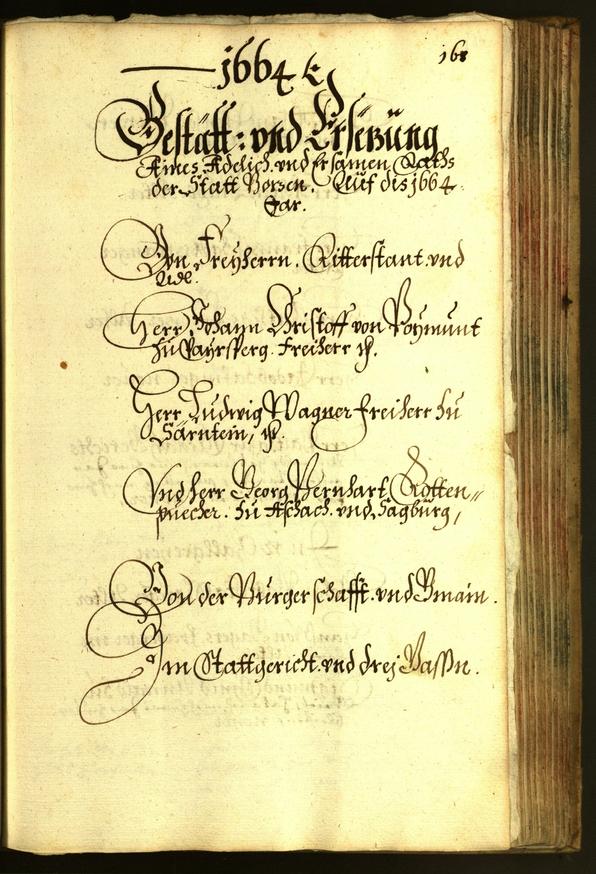 168
1664
Bestätt: vnd Ersezung
Eines Adelich. vnd Ersamen Raths
der Statt Bozen. Auf dis 1664
Jar.
Von Freyherrn. Ritterstant. vnd
Adl.
Herr Johann Cristoff von Poymunt
zu Payrsperg. Freiherr
Herr Ludwig Wagner freiherr zu
Särntein,
Vnd herr Georg Bernhart Rotten„
puecher. zu Aschach. vnd Sagburg,
Von der Burgerschafft. vnd Gmain.
Im Stattgericht. vnd drej Gassn.